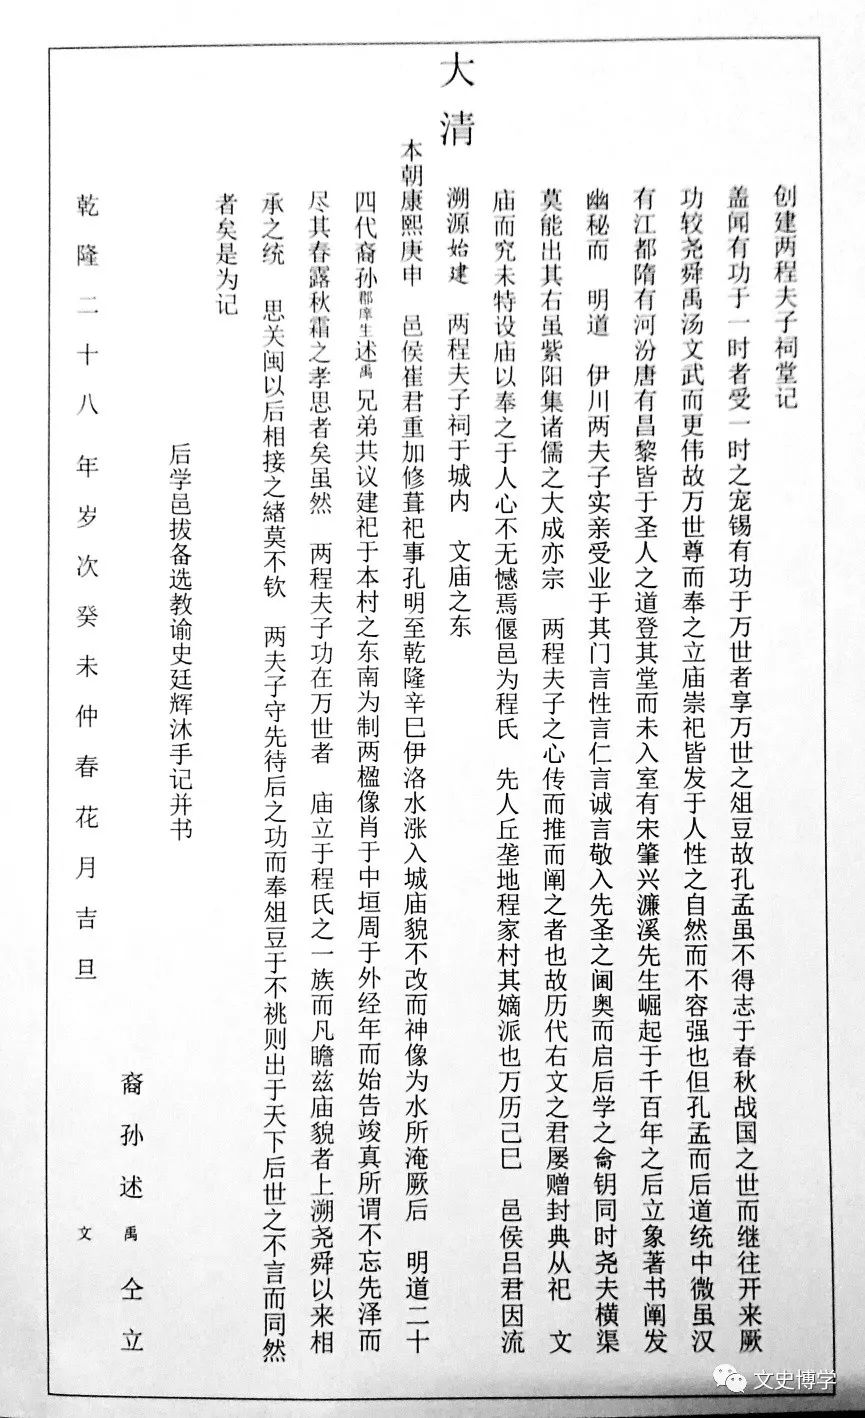 创建两程夫子祠堂记
盖闻有功于一时者受一时之宠锡有功于万世者享万世之俎豆故孔孟虽不得志于春秋战国之世而继往开来厥
功较尧舜禹汤文武而更伟故万世尊而奉之立庙崇祀皆发于人性之自然而不容强也但孔孟而后道统中微虽汉
有江都隋有河汾唐有昌黎皆于圣人之道登其堂而未入室有宋肇兴濂溪先生崛起于千百年之后立象著书阐发
幽秘而 明道 伊川两夫子实亲受业于其门言性言仁言诚言敬入先圣之阃奥而启后学之龠钥同时尧夫横渠
莫能出其右虽紫阳集诸儒之大成亦宗 两程夫子之心传而推而阐之者也故历代右文之君屡赠封典从祀 文
庙而究未特设庙以奉之于人心不无憾焉偃邑为程氏 先人丘垄地程家村其嫡派也万历己巳 邑侯吕君因流
大清
溯源始建 两程夫子祠于城内 文庙之东
本朝康熙庚申 邑侯崔君重加修葺祀事孔明至乾隆辛巳伊洛水涨入城庙貌不改而神像为水所淹厥后 明道二十
四代裔孙郡庠生述禹兄弟共议建祀于本村之东南为制两楹像肖于中垣周于外经年而始告竣真所谓不忘先泽而
尽其春露秋霜之孝思者矣虽然 两程夫子功在万世者 庙立于程氏之一族而凡瞻兹庙貌者上溯尧舜以来相
承之统 思关闽以后相接之緒莫不钦 两夫子守先待后之功而奉俎豆于不祧则出于天下后世之不言而同然
者矣是为记
后学邑拔备选教谕史廷辉沐手记并书
裔孙述禹仝立
乾隆二十八年岁次癸未仲春花月吉旦
文
文史博学